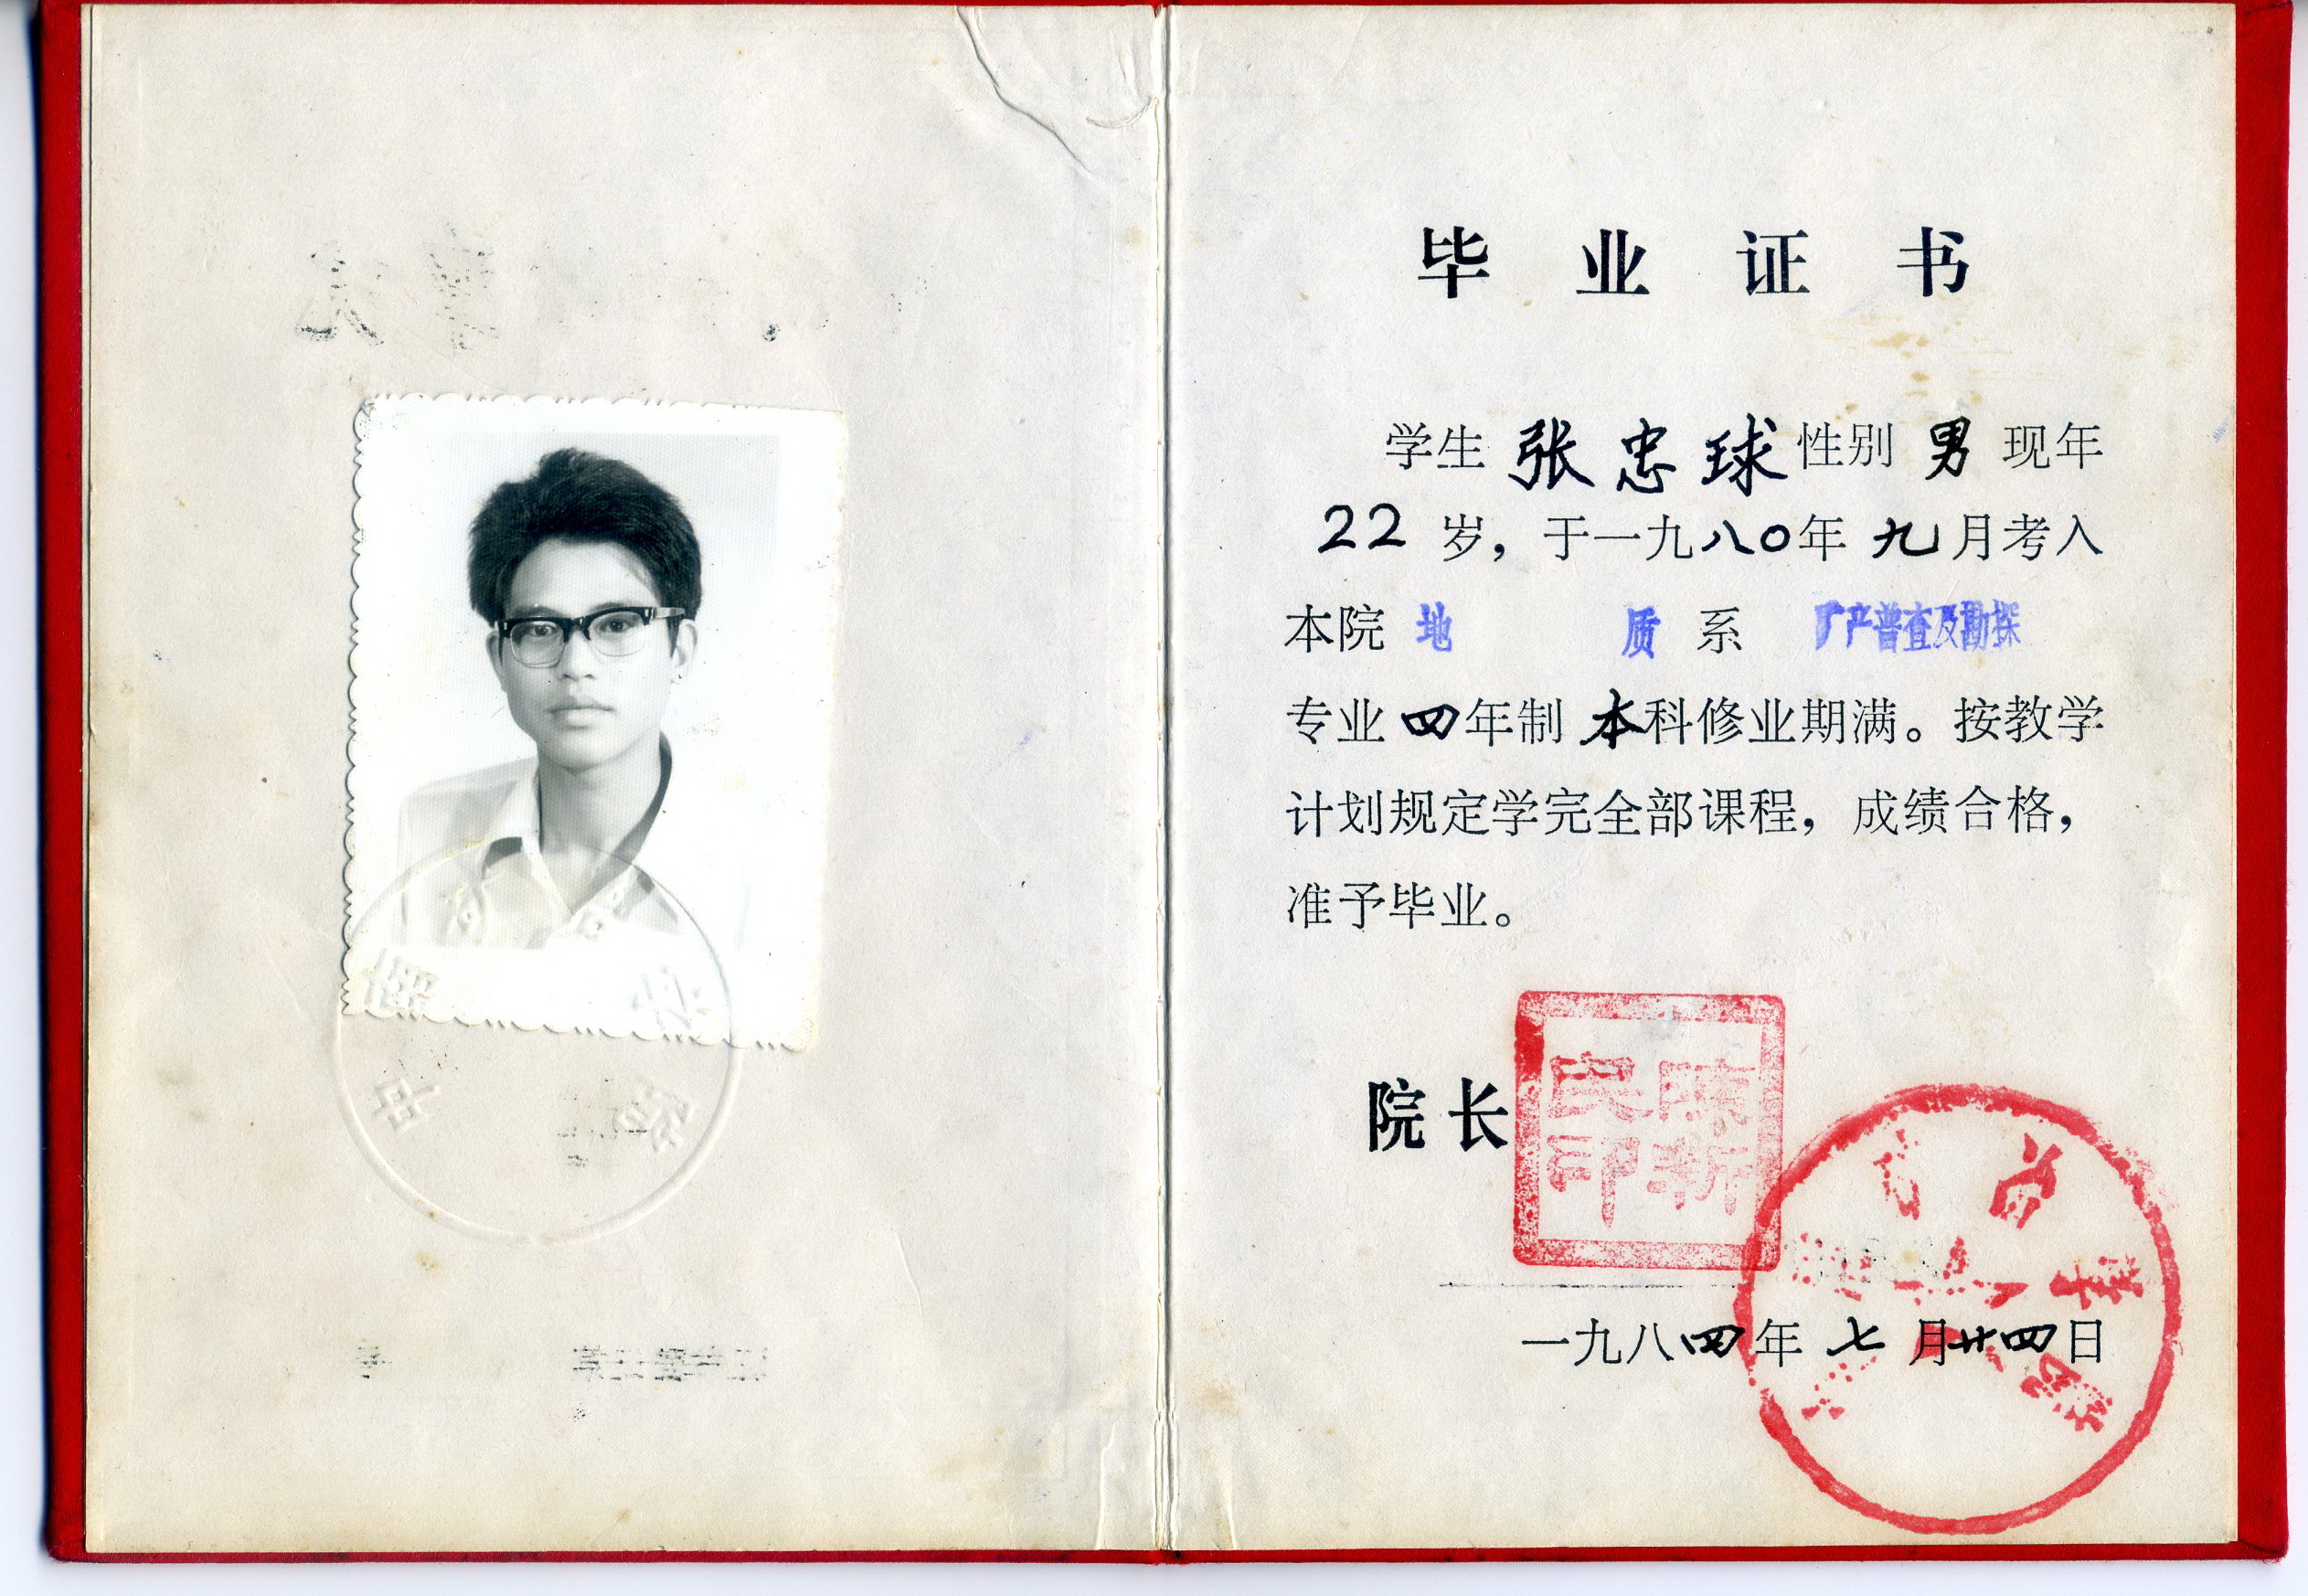 毕业证书
学生 张忠球 性别 男 现年
22 岁，于一九八〇年 九月考入
本院 地 质 系 矿产普查及勘探
专业 四年制 本科修业期满。按教学
计划规定学完全部课程，成绩合格，
准予毕业。
院长
陈新
民印
一九八四年 七月廿四日